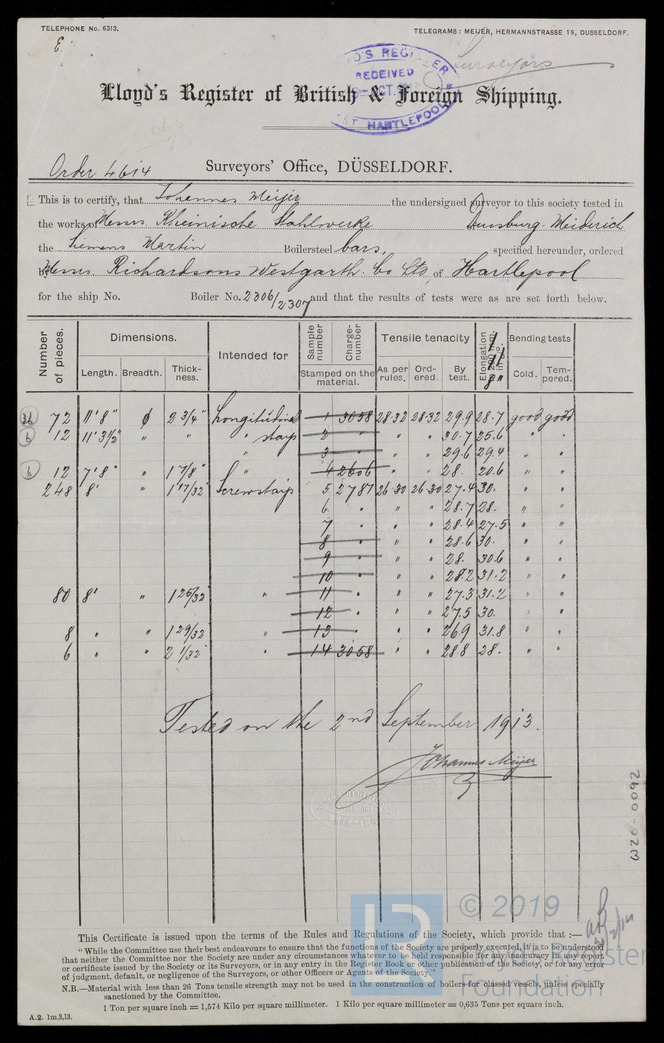 TELEPHONE No. 6313. TELEGRAMS: MEIJER, HERMANNSTRASSE 19, DUSSELDORF.
E. Surveyors
LLOYD'S REGISTER RECEIVED OCT. AT HARTLEPOOL
Lloyd's Register of British & Foreign Shipping.
Order 4614 Surveyors' Office, DÜSSELDORF.
This is to certify, that Johannes Meijer the undersigned surveyor to this society tested in
the works of Messrs Rheinische Stahlwerke Duisburg-Meiderich
the Siemens Martin Boilersteel bars, specified hereunder, ordered
by Messrs. Richardsons Westgarth Co Ltd, of Hartlepool
for the ship No. Boiler No. 2306/2307 and that the results of tests were as are set forth below.
Number of pieces. Dimensions. Intended for Sample number Charge-number Tensile tenacity Elongation Bending tests
Length. Breadth. Thickness. Stamped on the material. As per rules. Ordered. By test. 8" Cold. Tempered.
72 11' 8" ϕ 2 3/4" Longitudinal 1 3058 28-32 28-32 29.9 28.7 good good
6 12 11' 3 1/2" " " " stays 2 " " 30.7 25.6 " "
" 3 " " 29.6 29.4 " "
6 12 7' 8" " 1 7/8" " 4 2606 " " 28. 20.6 " "
248 8' " 1 17/32" Screwstays 5 2787 26-30 26-30 27.4 30. " "
6 " " 28.7 28. " "
7 " " 28.4 27.5 " "
8 " " 28.6 30. " "
9 " " 28. 30.6 " "
10 " " 28.2 31.2 " "
80 8' " 1 25/32" " 11 " " 27.3 31.2 " "
12 " " 27.5 30. " "
8 " " 1 29/32 " 13 " " 26.9 31.8 " "
6 " " 2 1/32" " 14 3058 " " 28.8 28. " "
Tested on the 2nd September 1913.
Johannes Meijer
W20-0092
© 2019
Lloyd's Register
Foundation
This Certificate is issued upon the terms of the Rules and Regulations of the Society, which provide that :—
"While the Committee use their best endeavours to ensure that the functions of the Society are properly executed, it is to be understood
that neither the Committee nor the Society are under any circumstances whatever to be held responsible for any inaccuracy in any report
or certificate issued by the Society or its Surveyors, or in any entry in the Register Book or other publication of the Society, or for any error
of judgment, default, or negligence of the Surveyors, or other Officers or Agents of the Society."
N.B.—Material with less than 26 Tons tensile strength may not be used in the construction of boilers for classed vessels, unless specially
sanctioned by the Committee.
1 Ton per square inch = 1,574 Kilo per square millimeter. 1 Kilo per square millimeter = 0,635 Tons per square inch.
A.2. 1m,3,13.